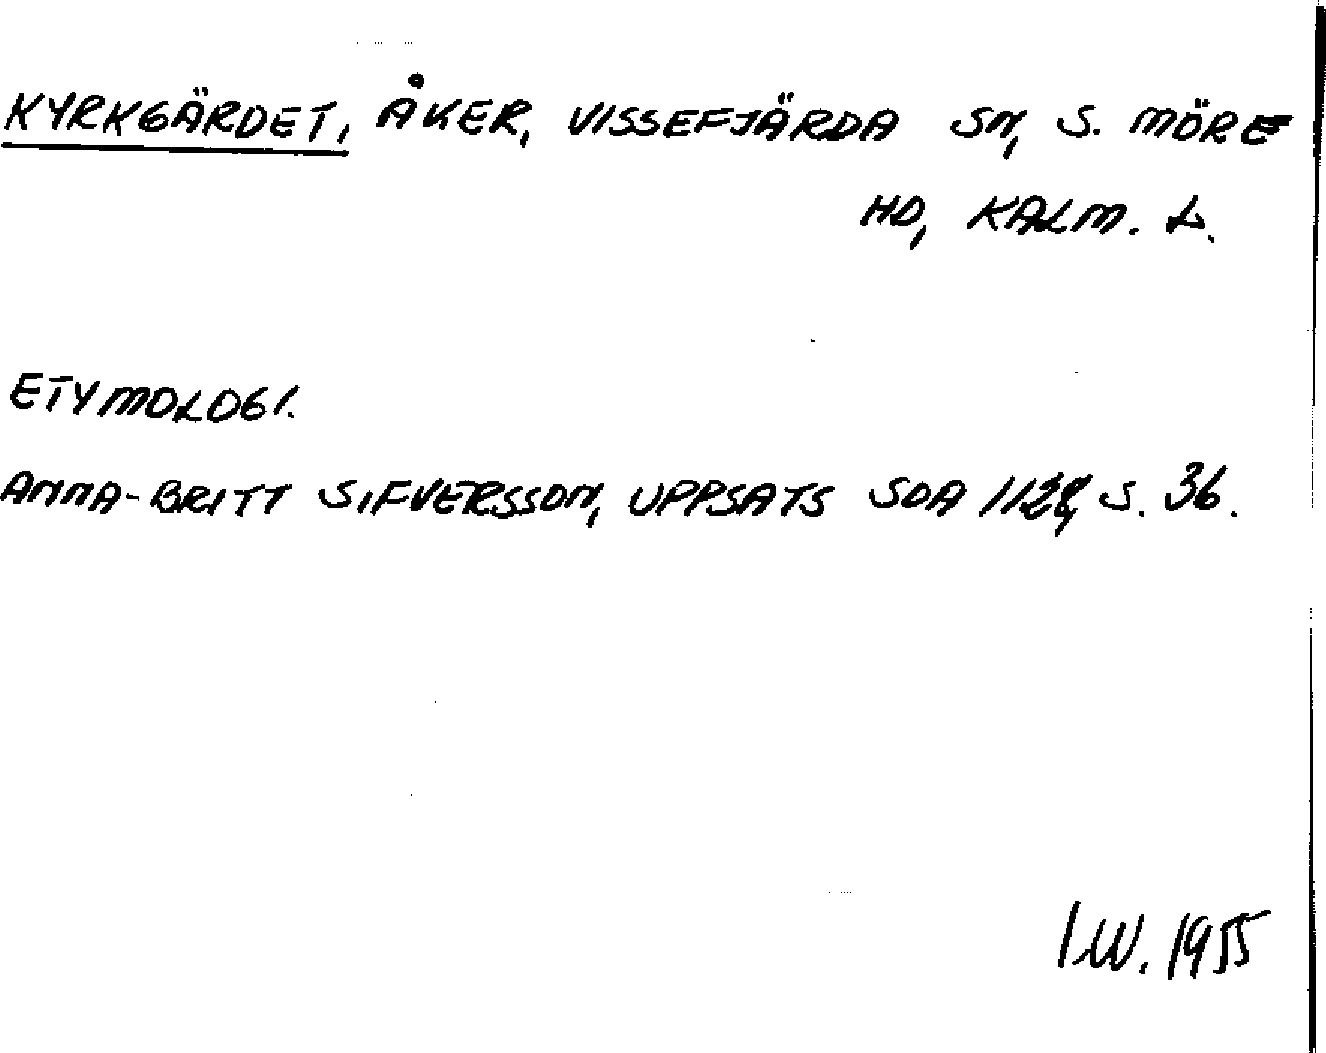 KYRKGÄRDET, ÅKER, VISSEFJÄRDA SN, S. MÖRE
HD, KALM. L.
ETYMOLOGI.
ANNA-BRITT SIFVERSSON, UPPSATS SOA 1128, S. 36.
I.W. 1955